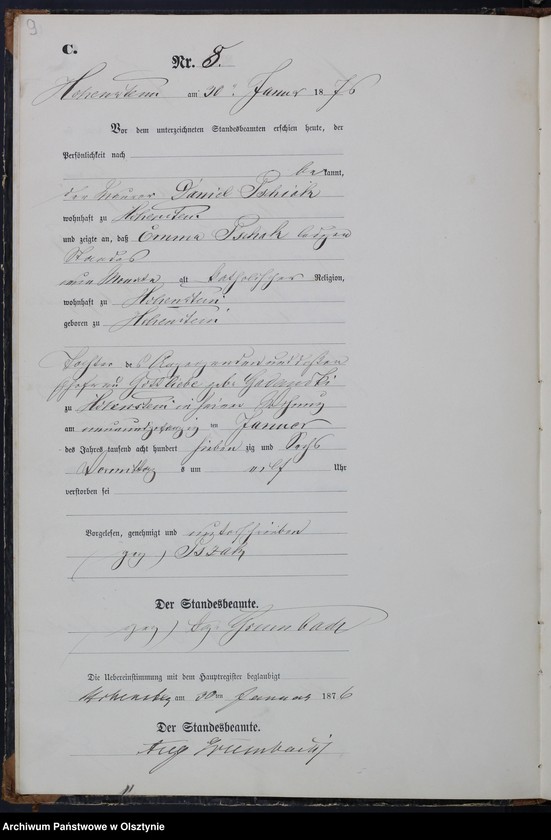 9
C.
Nr. 5.
Hohenstein am 30ten Januar 1876
Vor dem unterzeichneten Standesbeamten erschien heute, der
Persönlichkeit nach
bekannt,
der Maurer Daniel
wohnhaft zu Hohenstein
und zeigte an, daß Emma ledigen
Standes
neun Monate alt katholischer Religion,
wohnhaft zu Hohenstein
geboren zu Hohenstein
Tochter des und dessen
Ehefrau Gottliebe geb.
zu Hohenstein in seiner Wohnung
am neunundzwanzig ten Januar
des Jahres tausend acht hundert siebenzig und sechs
Vormittags um elf Uhr
verstorben sei
Vorgelesen, genehmigt und unterschrieben
gez)
Der Standesbeamte.
gez) Grumbach
Die Uebereinstimmung mit dem Hauptregister beglaubigt
Hohenstein am 30ten Januar 1876
Der Standesbeamte.
Aug Grumbach
Archiwum Państwowe w Olsztynie